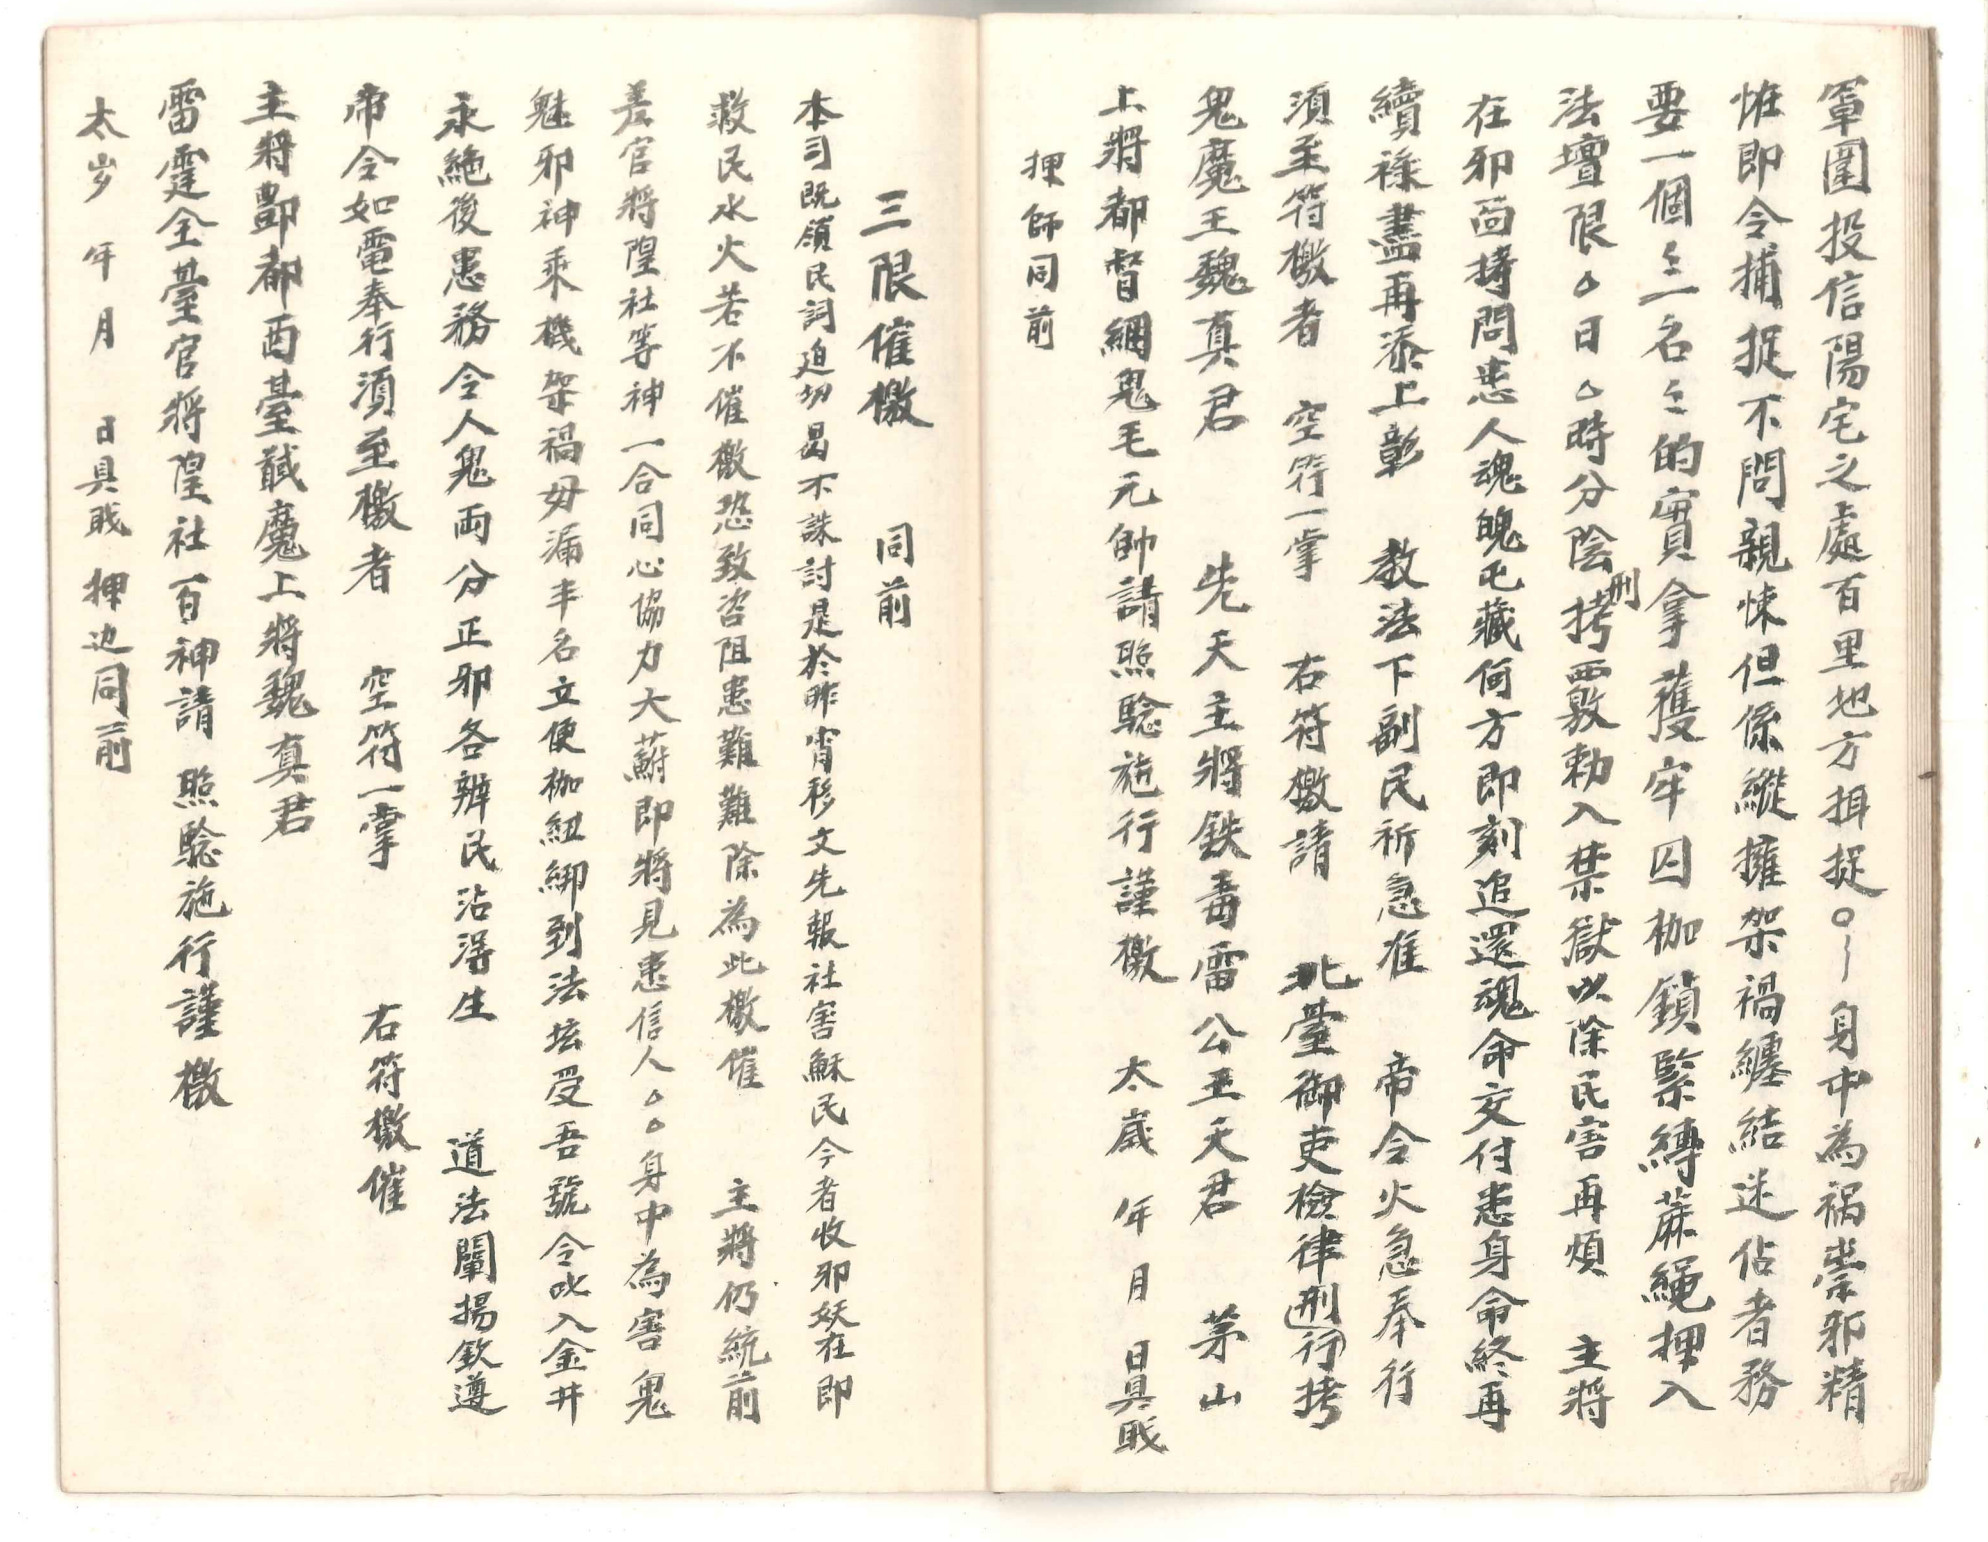 軍圍投信陽宅之處百里地方揖捉○〡身中為禍祟邪精
惟即令捕捉不問親悚但係縱擁架禍纏結迷佔者務
要一個〻一名〻的實拿獲牢囚枷鎖緊縛蔴繩押入
法壇限△日△時分陰刑拷覈敕入禁獄以除民害再煩 主將
在邪面拷問患人魂魄屯藏何方即刻追還魂命交付患身命終再
續祿盡再添上彰 教法下副民祈急准 帝令火急奉行
須至符檄者 空符一掌 右符檄請 北臺御吏檢律刑行拷
鬼魔王魏真君 先天主將鉄毒雷公王天君 茅山
上將都督綑鬼毛元帥請照騐施行謹檄 太歲 年 月 日具戝
押師同前
三限催檄 同前
本司既領民詞迫切曷不誅討是於昨宵移文先報社害穌民今者收邪妖在即
救民水火若不催檄恐致咨阻患難難除為此檄催 主將仍統前
差官將隍社等神一合同心協力大蔚即將見患信人△△身中為害鬼
魅邪神乘機架禍毋漏丰名立便枷紐綁到法坛受吾號令叱入金井
永絕後患務令人鬼両分正邪各辨民沾淂生 道法闡揚欽遵
帝令如電奉行須至檄者 空符一掌 右符檄催
主將酆都酉臺馘魔上將魏真君
雷霆全臺官將隍社百神請 照騐施行謹檄
太岁 年 月 日具戝 押边同前